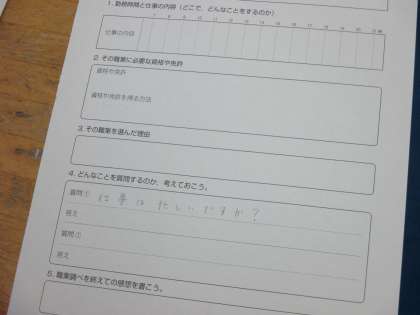 1. 勤務時間と仕事の内容（どこで、どんなことをするのか）
7 8 9 10 11 12 13 14 15 16 17 18 19 20
仕事の内容
2. その職業に必要な資格や免許
資格や免許
資格や免許を得る方法
3. その職業を選んだ理由
4. どんなことを質問するのか、考えておこう。
質問① 仕事は忙しいですか？
答え
質問②
答え
5. 職業調べを終えての感想を書こう。